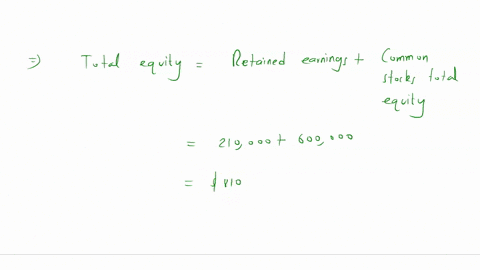 ⇒ Total equity = Retained earnings + Common stocks total equity
= 210,000 + 600,000
= $810